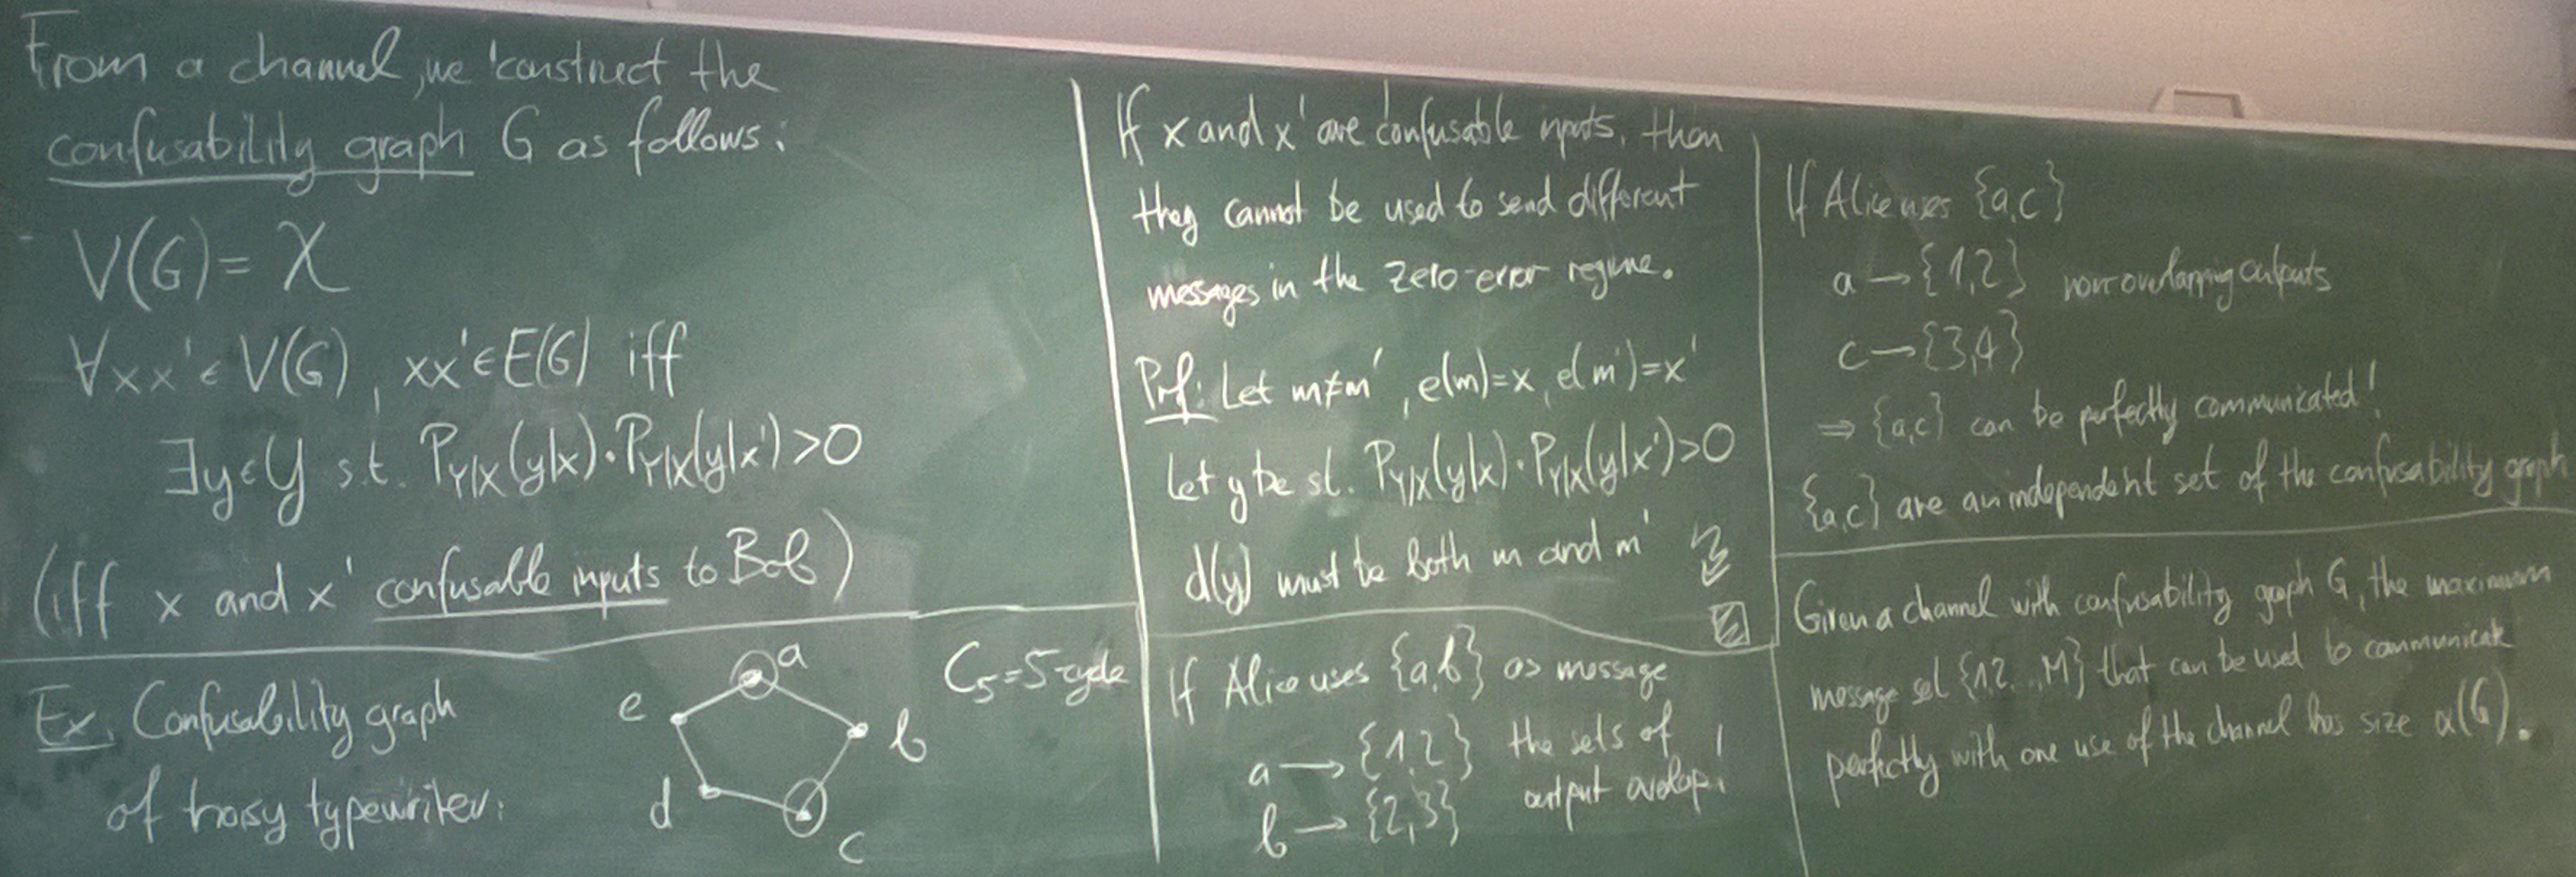 From a channel, we construct the
confusability graph G as follows:
V(G) = X
∀xx' ∈ V(G), xx' ∈ E(G) iff
∃y ∈ Y s.t. P_{Y|X}(y|x) · P_{Y|X}(y|x') > 0
(iff x and x' confusable inputs to Bob)
Ex. Confusability graph
of noisy typewriter:
a
b
c
d
e
C₅ = 5-cycle
If x and x' are confusable inputs, then
they cannot be used to send different
messages in the zero-error regime.
Prf: Let m≠m', e(m)=x, e(m')=x'
Let y be st. P_{Y|X}(y|x) · P_{Y|X}(y|x') > 0
d(y) must be both m and m'
If Alice uses {a,b} as message
a → {1,2} the sets of
b → {2,3} output overlap!
If Alice uses {a,c}
a → {1,2} non overlapping outputs
c → {3,4}
⇒ {a,c} can be perfectly communicated!
{a,c} are an independent set of the confusability graph
Given a channel with confusability graph G, the maximum
message set {1,2...,M} that can be used to communicate
perfectly with one use of the channel has size α(G).